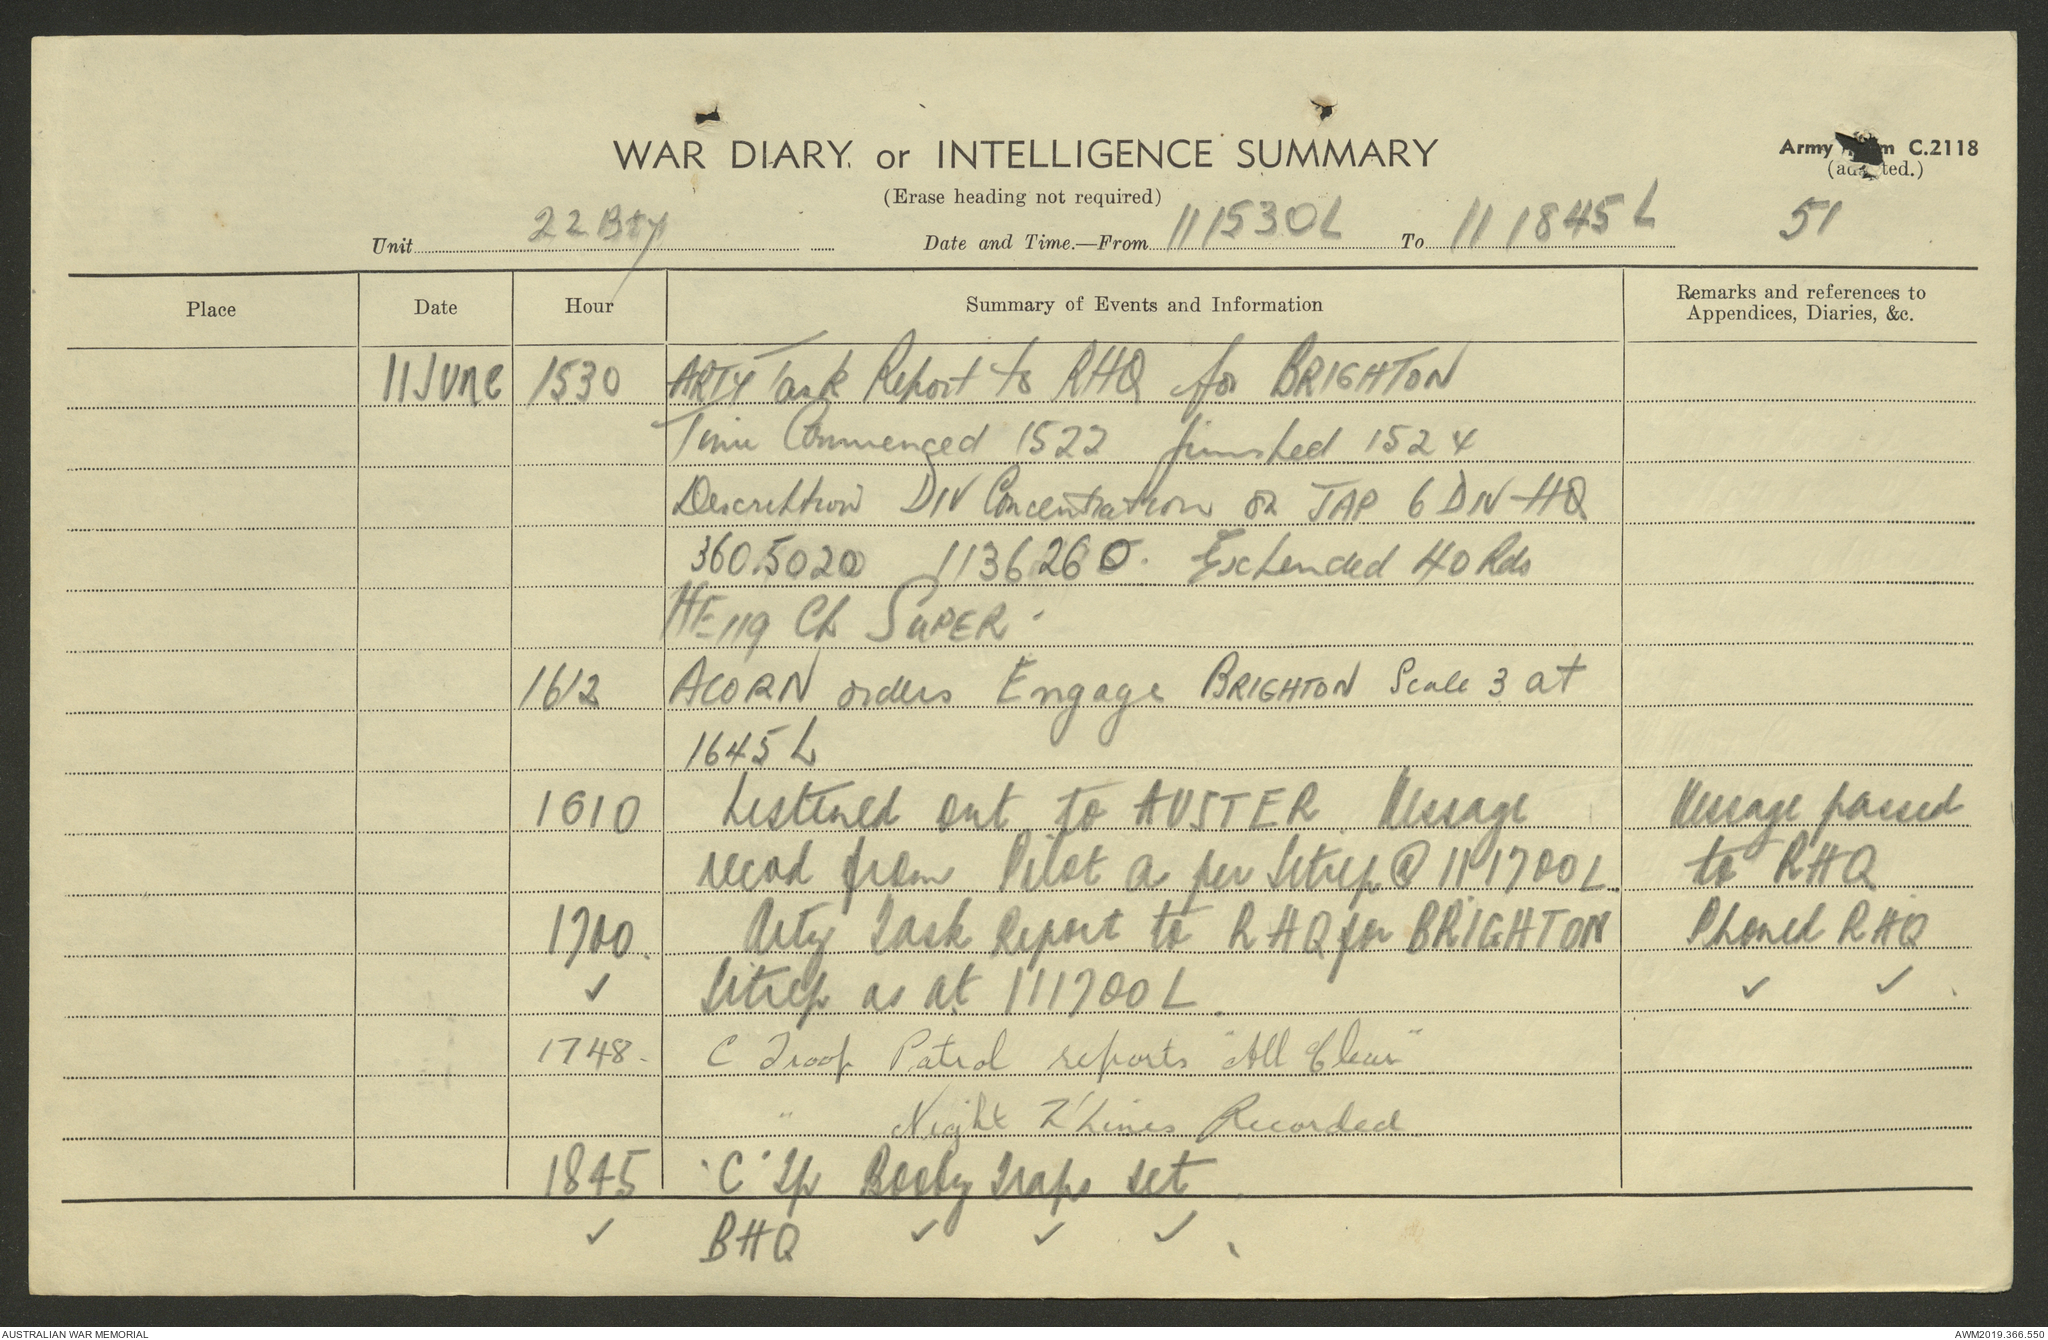 WAR DIARY or INTELLIGENCE SUMMARY
Army Form C.2118
(adapted.)
(Erase heading not required)
51
Unit 22 Bty Date and Time.—From 111530L To 111845L
Place Date Hour Summary of Events and Information Remarks and references to Appendices, Diaries, &c.
11 June 1530 ARTY Task Report to RHQ for BRIGHTON
Time Commenced 1522 finished 1524
Description DIV Concentration on JAP 6 DIV HQ
360.5020 1136260. Expended 40 Rds
HE 119 Ch SUPER.
1612 ACORN orders Engage BRIGHTON Scale 3 at
1645 L
1610 Listened out to AUSTER. Message Message passed
recvd from Pilot a per Sitrep @ 111700L. to RHQ
1700. Arty Task Report to RHQ for BRIGHTON Phoned RHQ
✓ Sitrep as at 111700L. ✓ ✓ .
1748. C Troop Patrol reports "All Clear"
" Night Z Lines Recorded
1845 'C' Tp Booby Traps set.
✓ BHQ ✓ ✓ ✓
AUSTRALIAN WAR MEMORIAL
AWM2019.366.550